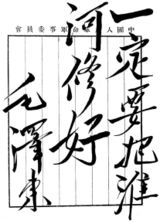 中國人命軍事委員會
一定要把淮
河修好
毛澤東